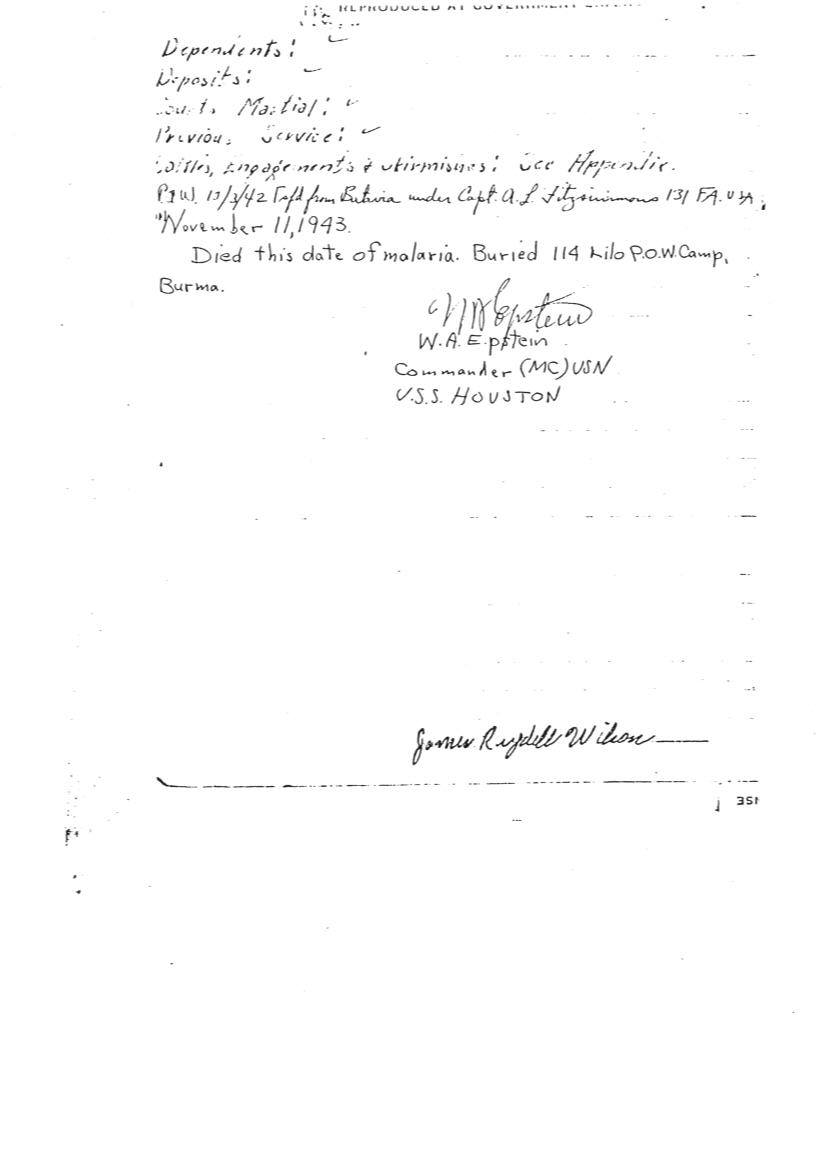 REPRODUCED AT GOVERNMENT
Dependents:
Deposits:
Courts Martial:
Previous Service:
Battles, Engagements & Skirmishes: See Appendix.
P.O.W. /3/42 Tsfd from Batavia under Capt. A. L. Fitzsimmons 131 FA. USA.
November 11, 1943.
Died this date of malaria. Buried 114 Kilo P.O.W. Camp,
Burma.
W A Epstein
W. A. Epstein
Commander (MC) USN
U.S.S. HOUSTON
James Wilson